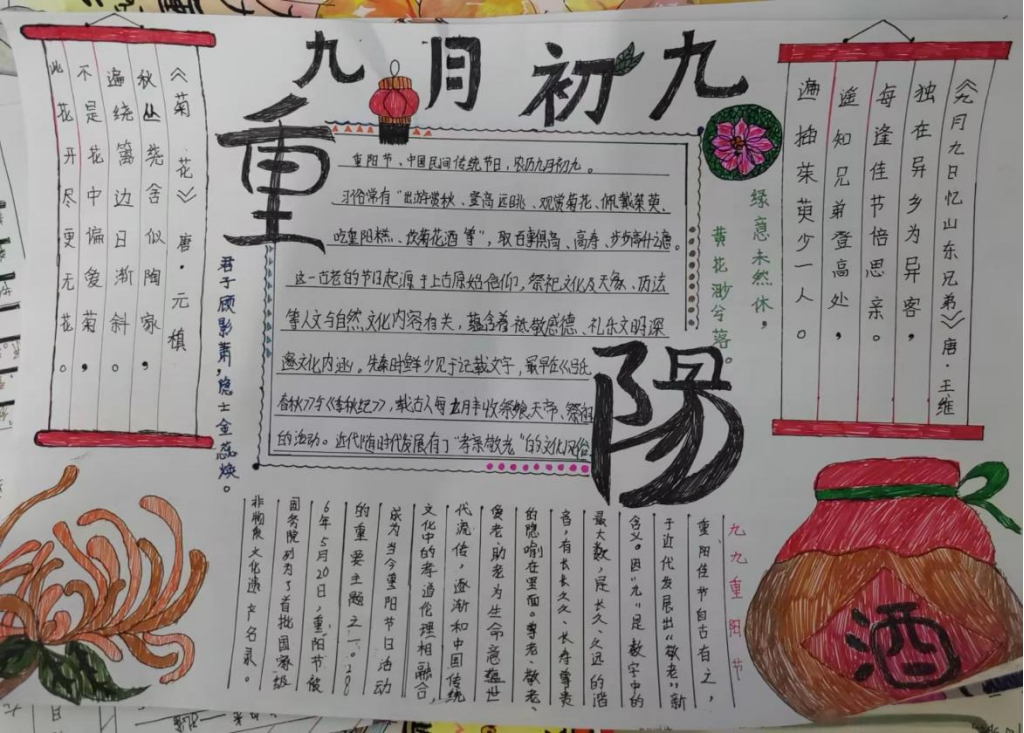 九月初九
重
阳
《菊花》唐·元稹
秋丛绕舍似陶家，
遍绕篱边日渐斜。
不是花中偏爱菊，
此花开尽更无花。
《九月九日忆山东兄弟》唐·王维
独在异乡为异客，
每逢佳节倍思亲。
遥知兄弟登高处，
遍插茱萸少一人。
重阳节、中国民间传统节日，农历九月初九。
习俗常有“出游赏秋、登高远眺、观赏菊花、佩戴茱萸、
吃重阳糕、饮菊花酒等”，取百事俱高、高寿、步步高升之意。
这一古老的节日起源于上古原始信仰，祭祀文化及天象、历法
等人文与自然文化内容有关，蕴含着祗敬感德、礼乐文明深
邃文化内涵。先秦时鲜少见于记载文字，最早在《吕氏
春秋》《季秋纪》，载古人每九月丰收祭飨天帝、祭祖
的活动。近代随时代发展有了“孝亲敬老”的文化风俗
缘意未然休，
黄花渺兮落。
君子顾影萧，
隐士金蕊焕。
九九重阳节
重阳佳节自古有之，
于近代发展出“敬老”新
含义。因“九”是数字中的
最大数，是长久、久远的谐
音，有长长久久、长寿尊贵
的隐喻在里面。尊老、敬老、
爱老、助老为生命意蕴世
代流传，逐渐和中国传统
文化中的孝道伦理相融合，
成为当今重阳节日活动
的重要主题之一。200
6年5月20日，重阳节被
国务院列为了首批国家级
非物质文化遗产名录。
酒